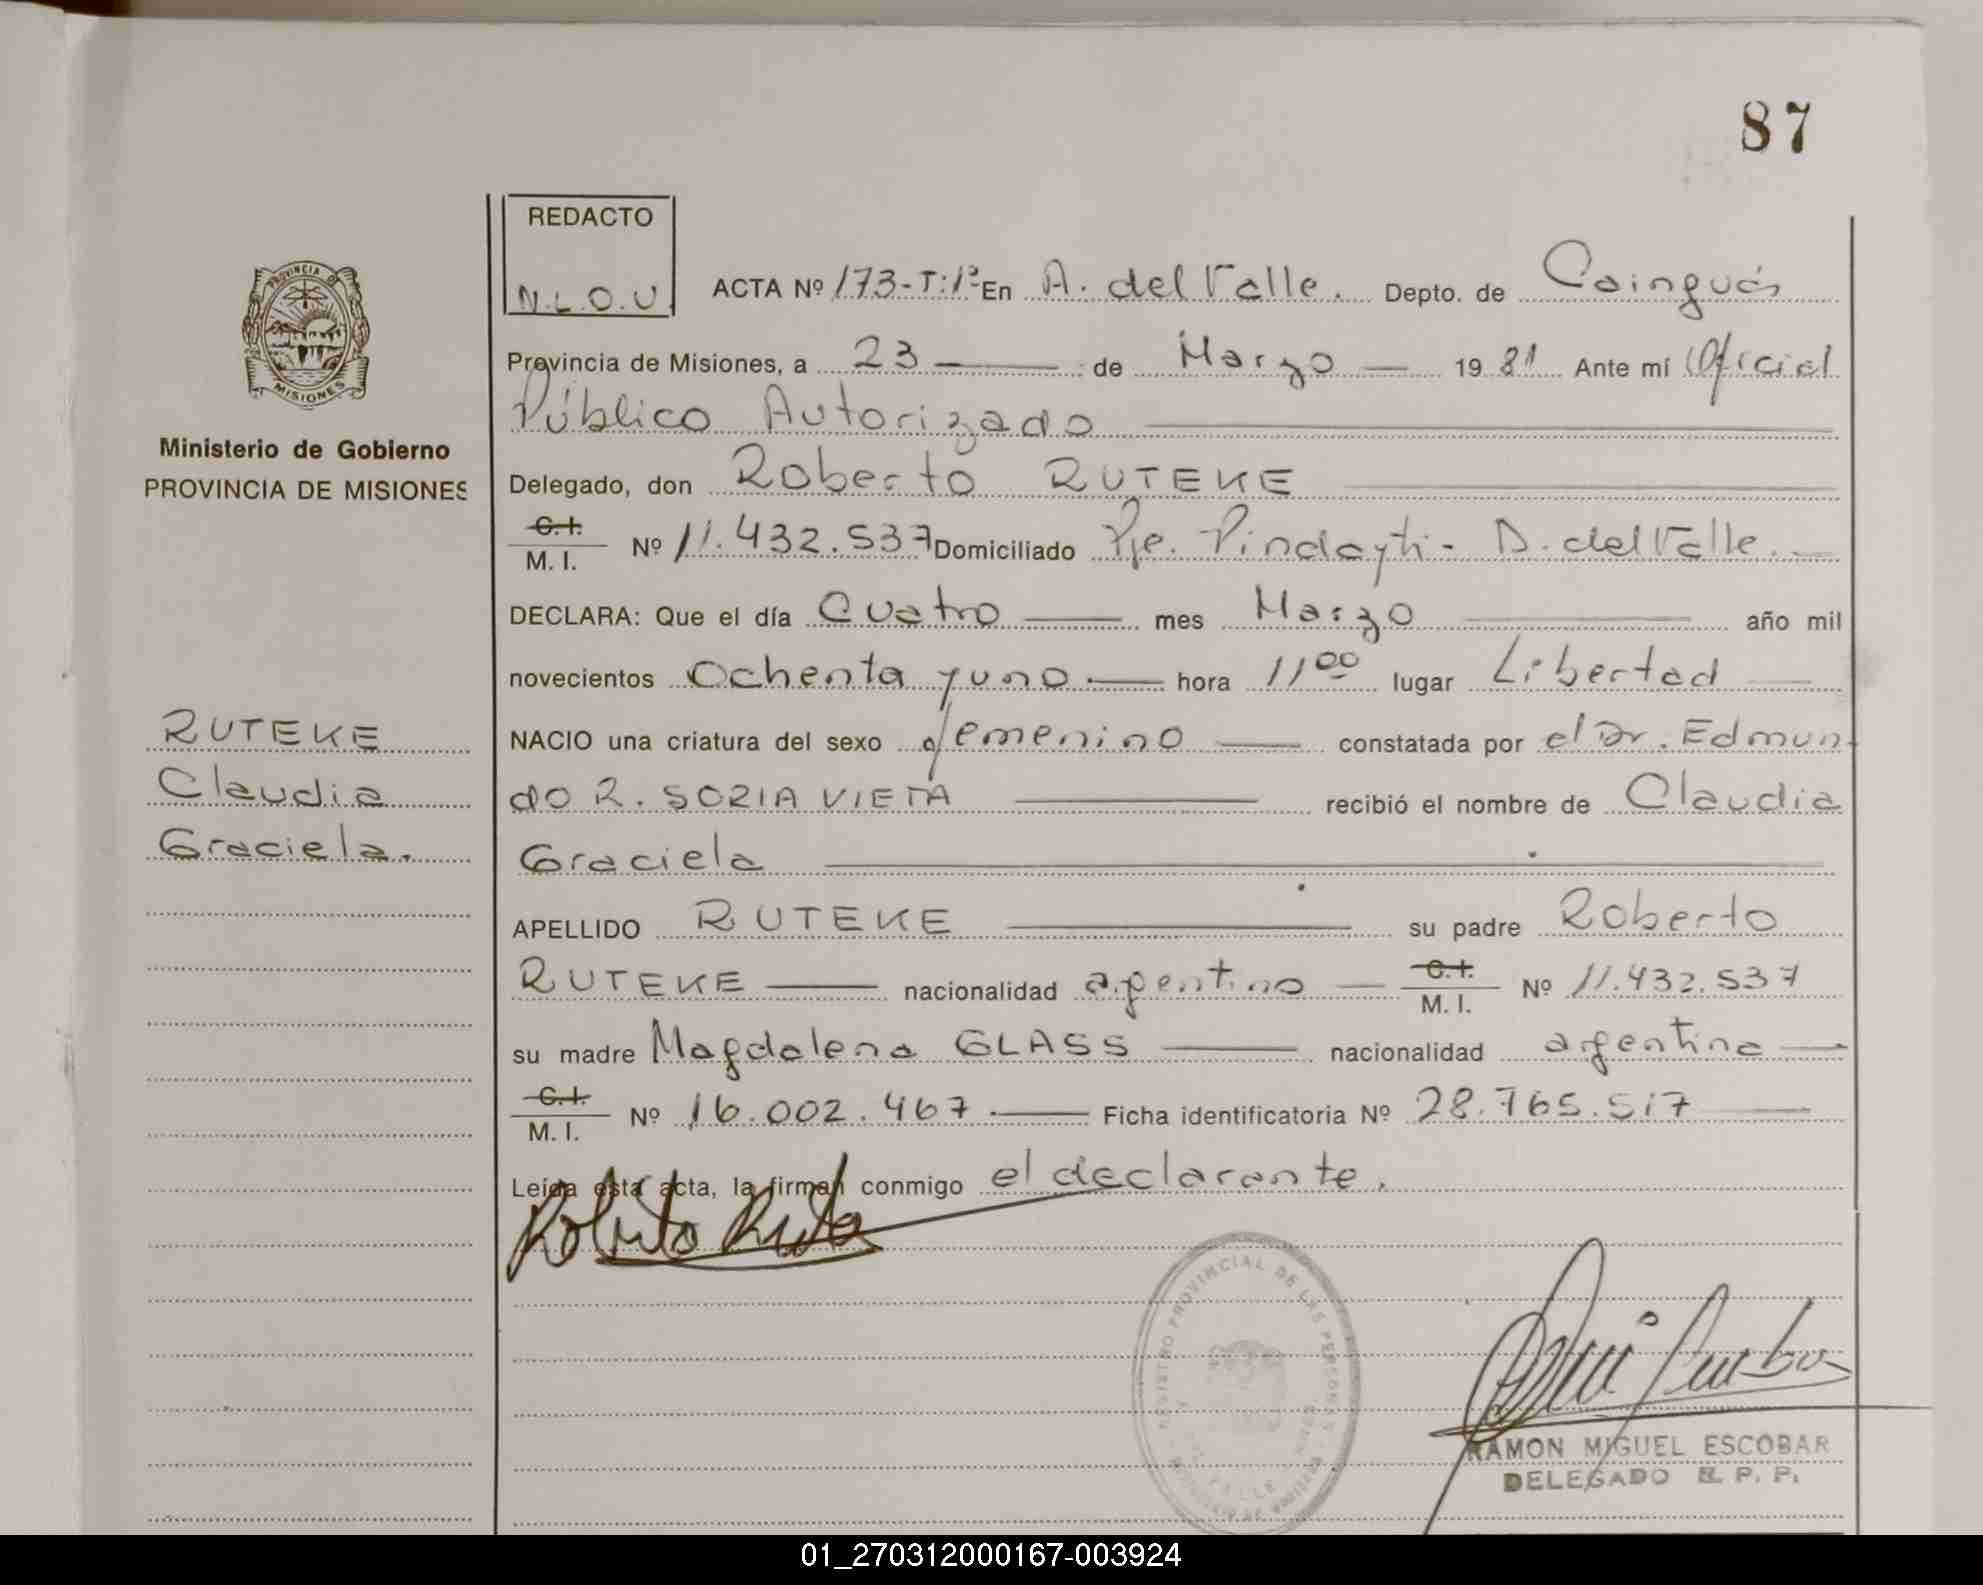 87
REDACTO
N.L.O.U.
ACTA Nº 173-T:1º En A. del Valle. Depto. de Cainguás
Provincia de Misiones, a 23 de Marzo 1981 Ante mí Oficial
Público Autorizado
PROVINCIA DE MISIONES
Ministerio de Gobierno
PROVINCIA DE MISIONES
Delegado, don Roberto RUTEKE
C.I. M.I. Nº 11.432.537 Domiciliado Pje. Pindayti - A. del Valle.
DECLARA: Que el día Cuatro mes Marzo año mil
novecientos Ochenta y uno hora 11 00 lugar Libertad
RUTEKE
Claudia
Graciela.
NACIO una criatura del sexo femenino constatada por el Dr. Edmun-
do R. SORIA VIETA recibió el nombre de Claudia
Graciela
APELLIDO RUTEKE su padre Roberto
RUTEKE nacionalidad argentino C.I. M.I. Nº 11.432.537
su madre Magdalena GLASS nacionalidad argentina
C.I. M.I. Nº 16.002.467. Ficha identificatoria Nº 28.765.517
Leída esta acta, la firman conmigo el declarante.
REGISTRO PROVINCIAL DE LAS PERSONAS
RAMON MIGUEL ESCOBAR
DELEGADO R. P. P.
01_270312000167-003924